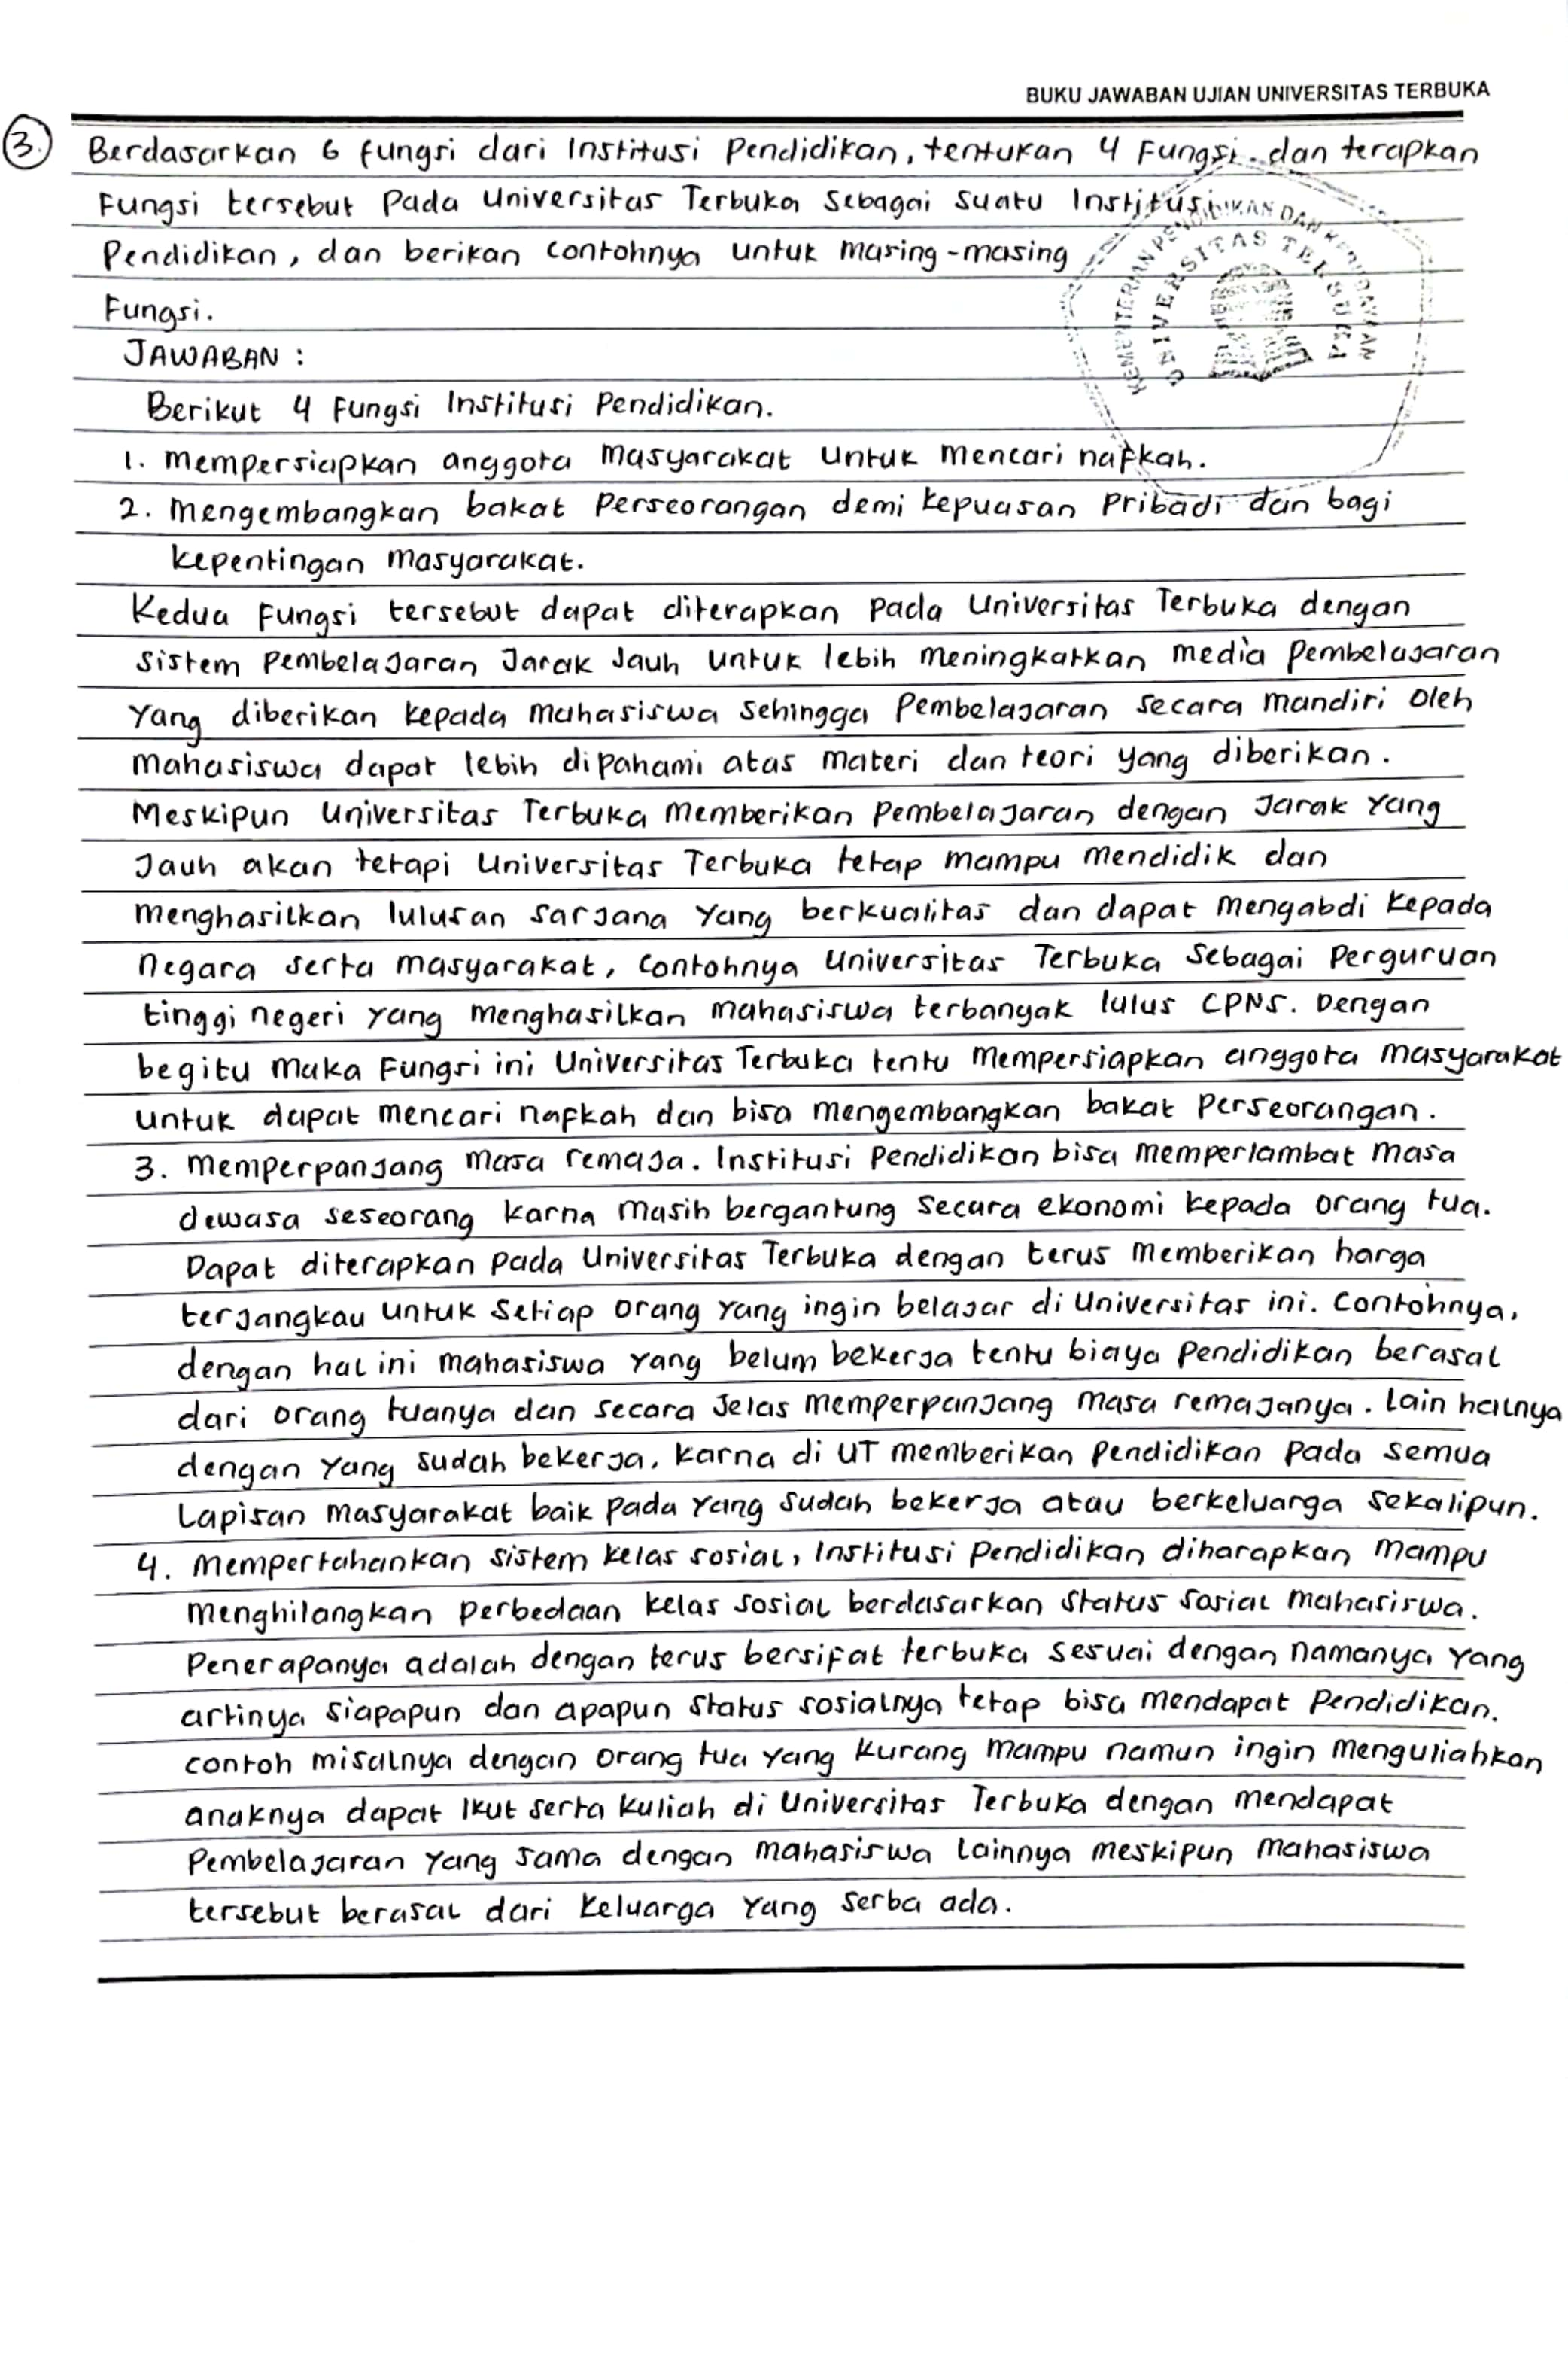 BUKU JAWABAN UJIAN UNIVERSITAS TERBUKA
3. Berdasarkan 6 fungsi dari Institusi Pendidikan, tentukan 4 Fungsi dan terapkan
Fungsi tersebut Pada Universitas Terbuka Sebagai suatu Institusi
Pendidikan, dan berikan contohnya untuk masing-masing
Fungsi.
KEMENTERIAN PENDIDIKAN DAN KEBUDAYAAN
UNIVERSITAS TERBUKA
JAWABAN :
Berikut 4 Fungsi Institusi Pendidikan.
1. Mempersiapkan anggota Masyarakat Untuk Mencari nafkah.
2. Mengembangkan bakat Perseorangan demi kepuasan Pribadi dan bagi
kepentingan Masyarakat.
Kedua Fungsi tersebut dapat diterapkan Pada Universitas Terbuka dengan
Sistem Pembelajaran Jarak Jauh Untuk lebih Meningkatkan media Pembelajaran
Yang diberikan kepada Mahasiswa Sehingga Pembelajaran Secara Mandiri Oleh
Mahasiswa dapat lebih dipahami atas Materi dan teori yang diberikan.
Meskipun Universitas Terbuka Memberikan Pembelajaran dengan Jarak Yang
Jauh akan tetapi Universitas Terbuka tetap mampu Mendidik dan
Menghasilkan lulusan Sarjana Yang berkualitas dan dapat Mengabdi kepada
Negara serta Masyarakat, Contohnya Universitas Terbuka Sebagai Perguruan
tinggi negeri Yang Menghasilkan Mahasiswa terbanyak lulus CPNS. Dengan
begitu Maka Fungsi ini Universitas Terbuka tentu Mempersiapkan anggota Masyarakat
Untuk dapat Mencari nafkah dan bisa Mengembangkan bakat Perseorangan.
3. Memperpanjang Masa remaja. Institusi Pendidikan bisa Memperlambat Masa
dewasa seseorang karna Masih bergantung Secara ekonomi kepada orang tua.
Dapat diterapkan pada Universitas Terbuka dengan terus Memberikan harga
terjangkau Untuk Setiap orang Yang ingin belajar di Universitas ini. Contohnya,
dengan hal ini Mahasiswa Yang belum bekerja tentu biaya Pendidikan berasal
dari orang tuanya dan secara Jelas Memperpanjang Masa remajanya. Lain halnya
dengan Yang Sudah bekerja, karna di UT Memberikan Pendidikan Pada Semua
Lapisan Masyarakat baik Pada Yang Sudah bekerja atau berkeluarga Sekalipun.
4. Mempertahankan Sistem kelas Sosial, Institusi Pendidikan diharapkan Mampu
Menghilangkan Perbedaan kelas sosial berdasarkan Status Sosial Mahasiswa.
Penerapanya adalah dengan terus bersifat terbuka Sesuai dengan namanya Yang
artinya Siapapun dan apapun Status sosialnya tetap bisa Mendapat Pendidikan.
contoh misalnya dengan Orang tua Yang kurang Mampu namun ingin Menguliahkan
anaknya dapat Ikut serta Kuliah di Universitas Terbuka dengan Mendapat
Pembelajaran Yang Sama dengan Mahasiswa Lainnya Meskipun Mahasiswa
tersebut berasal dari Keluarga Yang Serba ada.